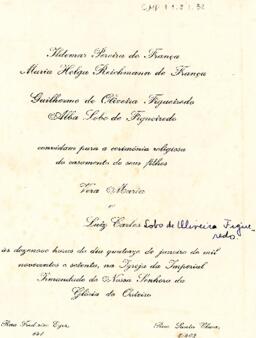 Ildemar Pereira de França
Maria Helga Reichmann de França
Guilherme de Oliveira Figueiredo
Alba Lobo de Figueiredo
convidam para a cerimônia religiosa
do casamento de seus filhos
Vera Maria
e
Luiz Carlos Lobo de Oliveira Figue-
redo
às dezenove horas do dia quatorze de janeiro de mil
novecentos e setenta, na Igreja da Imperial
Irmandade de Nossa Senhora da
Glória do Outeiro
Rua
Rua